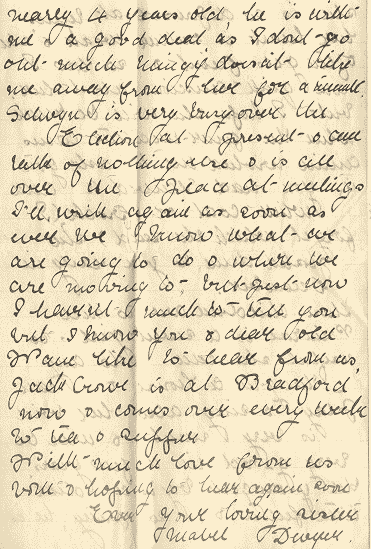 nearly 4 years old, he is with
me a good deal, as I dont go
out much Mangy doesnt like
me away from I live for a minute.
Selwyn is very busy over the
Election at present & can
talk of nothing else & is all
over the place at meetings
I'll write again as soon as
ever we know what we
are going to do & where we
are moving to, but just now
I havent much to tell you
but I know you & dear old
like to hear from us,
Jack Crowe is at Bradford
now & comes over every week
to tea & supper
With much love from us
both & hoping to hear again soon
Ever your loving sister
Mabel Dwyer.